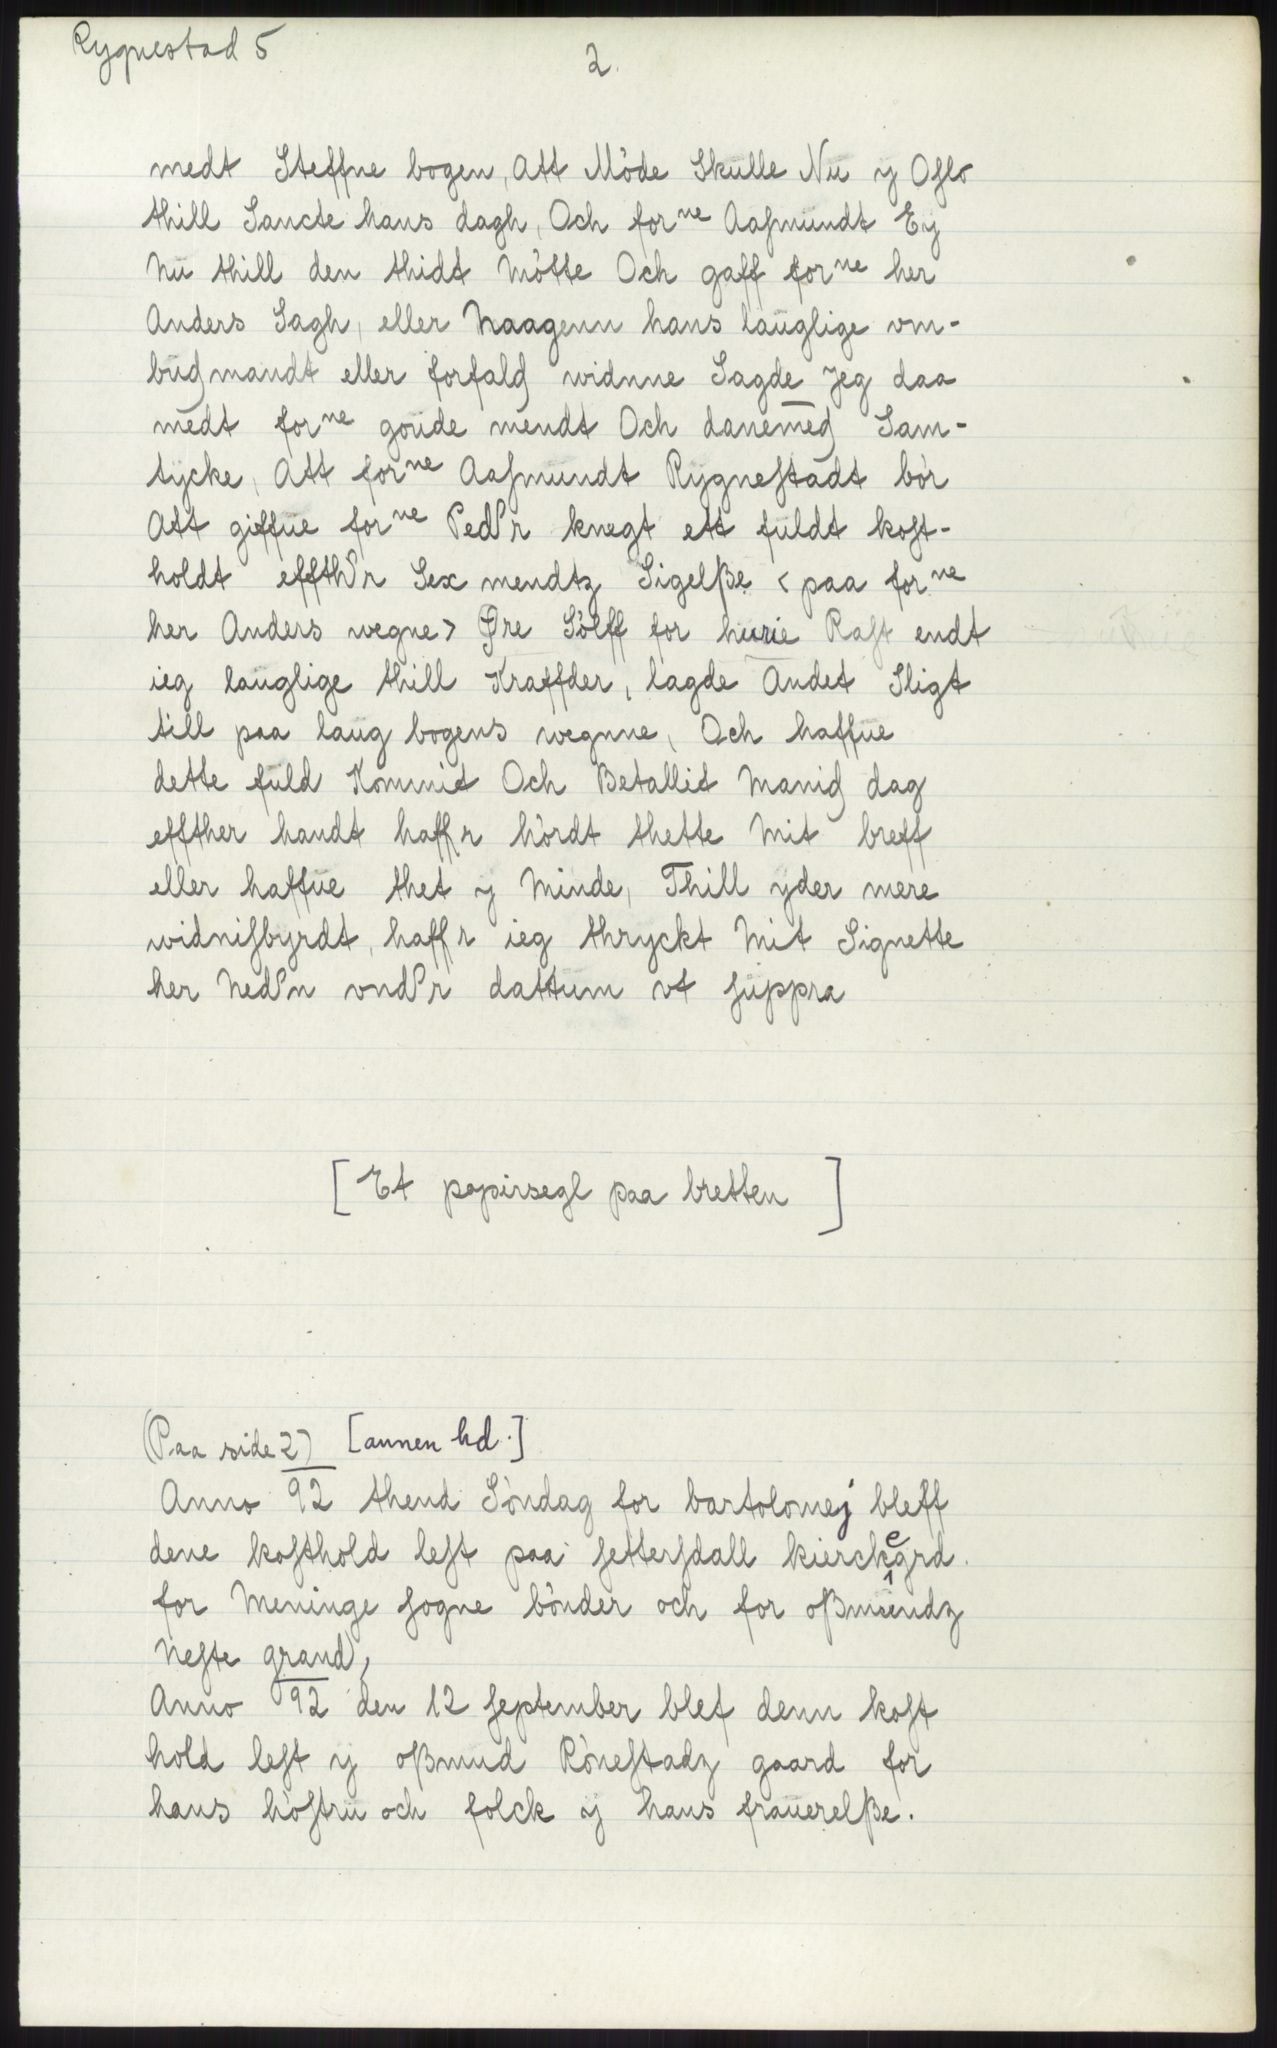 Rygnestad 5
2.
medt Steffne bogen, Att Móde Skulle Nu y Oſlo
thill Sancte hans dagh, Och forne Aaſmundt Ey
Nu thill den thidt Mótte Och gaff forne her
Anders Sagh, eller Naagenn hans lauglige om-
budmandt eller forfald widnne Sagde Jeg daa
medt forne goude mendt Och danemed Sam-
tycke, Att forne Aaſmundt Rygneſtadt bór
Att giffue forne Peder knegt ett fuldt koſt-
holdt effther Sex mendtz Sigelße < paa forne
her Anders wegne > Øre Sólff for hurie Raſt endt
ieg lauglige thill Kraffder, lagde Andet Sligt
till paa laug bogens wegnne, Och haffue
dette fuld Kommit Och Betallit Manid dag
effther handt haffr hórdt thette Mit breff
eller haffue thet y Minde, Thill yder mere
widniſbyrdt, haffr ieg thryckt Mit Signette
her Neden vnder dattum vt ſuppra
[Et papirsegl paa bretten]
(Paa side 2) [annen hd.]
Anno 92 thend Sóndag for bartolomej bleff
dene koſthold leſt paa ſetterſdall kierckegrd.
for Meninge ſogne bónder och for oßmundz
Neſte grand,
Anno 92 den 12 ſeptember blef denn koſt
hold leſt y oßmud Róneſtadz gaard for
hans hóſtru och folck y hans frauerelße.